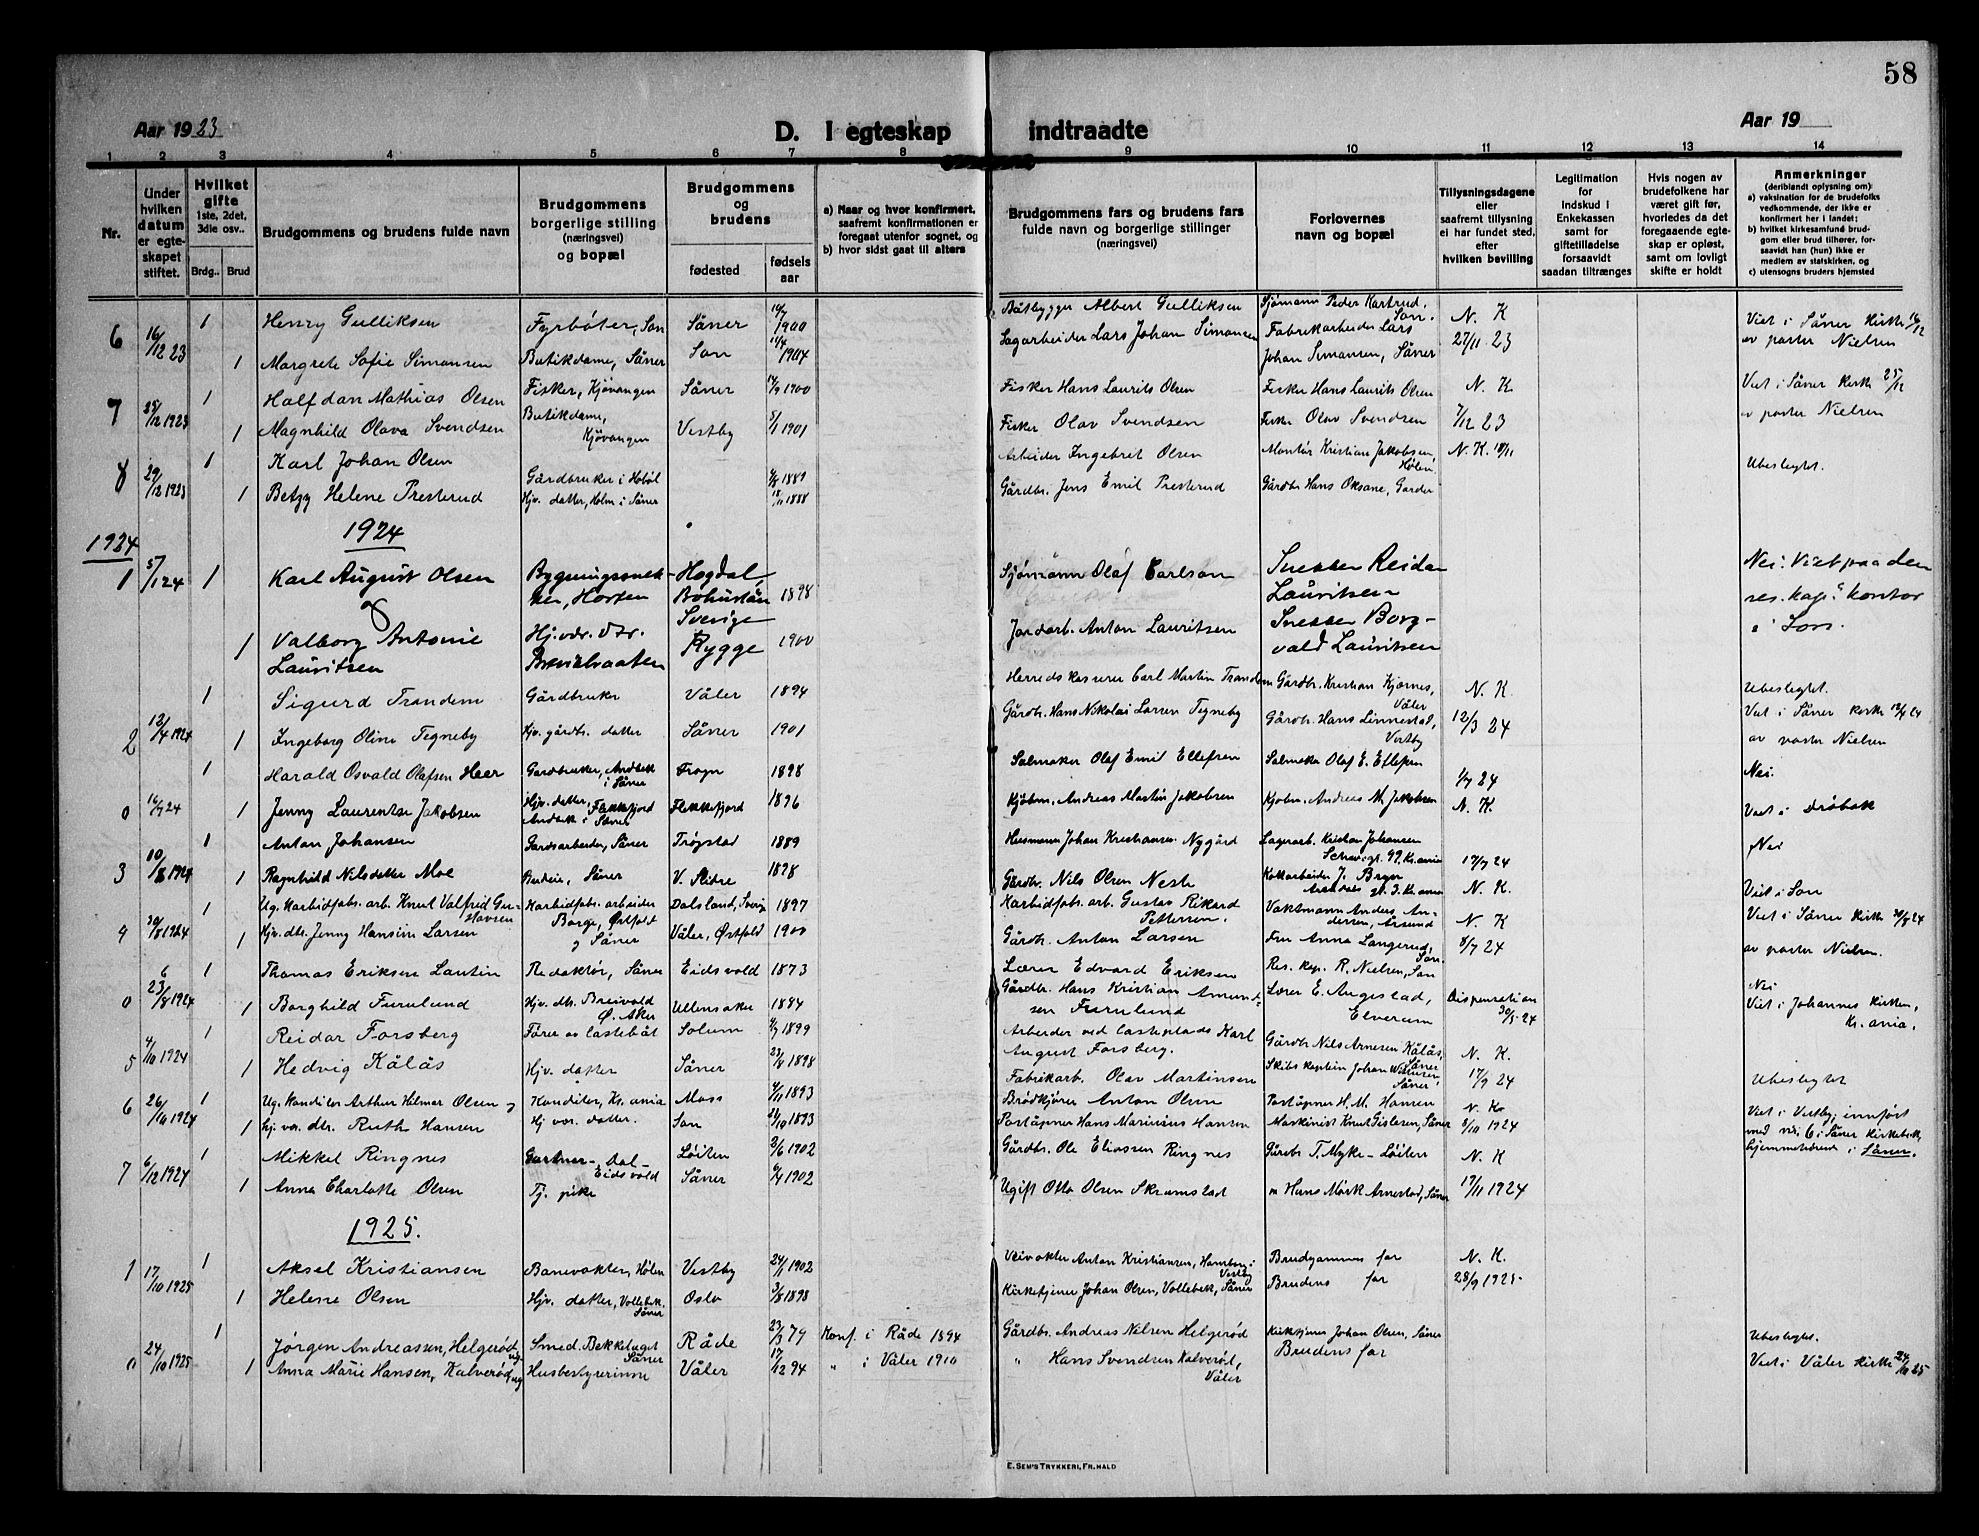 58
Aar 1923
D. I egteskap indtraadte
Aar 19
1 2 3 4 5 6 7 8 9 10 11 12 13 14
Nr.
Under hvilken datum er egteskapet stiftet.
Hvilket gifte 1ste, 2det, 3dle osv..
Brdg.. Brud
Brudgommens og brudens fulde navn
Brudgommens borgerlige stilling (næringsvei) og bopæl
Brudgommens og brudens
fødested
fødsels aar
a) Naar og hvor konfirmert, saafremt konfirmationen er foregaat utenfor sognet, og
b) hvor sidst gaat til alters
Brudgommens fars og brudens fars fulde navn og borgerlige stillinger (næringsvei)
Forlovernes navn og bopæl
Tillysningsdagene eller saafremt tillysning ei har fundet sted, efter hvilken bevilling
Legitimation for indskud i Enkekassen samt for giftetilladelse forsaavidt saadan tiltrænges
Hvis nogen av brudefolkene har været gift før, hvorledes da det foregaaende egteskap er opløst, samt om lovligt skifte er holdt
Anmerkninger
(deriblandt oplysning om)
a) vaksination for de brudefolks vedkommende, der ikke er konfirmert her i landet;
b) hvilket kirkesamfund brudgom eller brud tilhører, forsaavidt han (hun) ikke er medlem av statskirken, og
c) utensogns bruders hjemsted
6 16/12 23 1 Henry Gulliksen Fyrbøter, Son Såner 1900 Båtbygger Albert Gulliksen Sjømann Peder Kartrud, Son. N. K Viet i Såner kirke 16/12
1 Margrete Sofie Simonsen Butikdame, Såner Son 1904 Sagarbeider Lars Johan Simonsen Fabrikarbeider Lars Johan Simonsen, Såner 27/11 23 av pastor Nielsen
7 25/12 1923 1 Halfdan Mathias Olsen Fisker, Kjøvangen Såner 14/9 1900 Fisker Hans Laurits Olsen Fisker Hans Laurits Olsen N. K Viet i Såner kirke 25/12
1 Magnhild Olava Svendsen Butikdame, Kjøvangen Vestby 5/1 1901 Fisker Olav Svendsen Fisker Olav Svendsen 7/12 23 av pastor Nielsen
8 29/12 1923 1 Karl Johan Olsen Gårdbruker i Hobøl 1889 Arbeider Ingebret Olsen Montør Kristian Jakobsen, Hølen. N. K. 18/11 Ubeslegtet.
1 Betzy Helene Presterud Hjv. datter, Holm i Såner 18/11 1888 Gårdbr. Jens Emil Presterud Gårdbr Hans Oksane, Garder
1924
1924
1 5/1 24 1 Karl August Olsen Bygningssnekker, Horten Hogdal, Bohuslän Sverige 1898 Sjømann Olaf Carlson Snekker Reidar Lauritsen Nei. Viet paa den res. kap.s kontor i Son.
og
1 Valborg Antonie Lauritsen Hj.vær. dtr. Brevikbraaten Rygge 1900 Jordarb. Anton Lauritsen Snekker Borgvald Lauritsen
1 Sigurd Trandem Gårdbruker Våler 1894 Herredskasserer Carl Martin Trandem Gårdbr. Kristian Kjærnes, Våler N. K. Ubeslegtet.
2 12/4 1924 1 Ingeborg Oline Tegneby Hjv. gårdbr. datter Såner 1901 Gårdbr. Hans Nikolai Larsen Tegneby Gårdbr. Hans Linnestad, Vestby 12/3 24 Viet i Såner kirke 12/4 24 av pastor Nielsen
1 Harald Osvald Olafsen Heer Gardbruker, i Såner Frogn 1898 Salmaker Olaf Emil Ellefsen Salmaker Olaf E. Ellefsen 1/7 24 Nei.
0 16/7 24 1 Jenny Laurentse Jakobsen Hjv. datter, Flekkefjord i Såner Flekkefjord 1896 Kjøbm. Andreas Martin Jakobsen Kjøbm. Andreas M. Jakobsen N. K. Viet i Drøbak
1 Anton Johansen Gardsarbeider, Såner Trøgstad 1889 Husmann Johan Kristiansen Nygård Lagerarb. Kristian Johansen 99, Kr.ania 17/7 24 Nei
3 10/8 1924 1 Ragnhild Nilsdatter Moe Såner V. Slidre 1898 Gårdbr. Nils Olsen Kokkarbeider J. Kr.ania N. K. Viet i Son
1 Ug. Karbidfabr. arb. Knut Valfred Gustavsen Karbidfabr. arbeider Borge, Østfold Dalsland, Sverige 1897 Karbidfabr. arb. Gustav Rikard Pettersen. Vaktmann Anders Andersen, N. K Viet i Såner kirke 30/8 24
9 30/8 1924 1 Hjv. dtr. Jenny Hansine Larsen og Såner Våler, Østfold 1900 Gårdbr. Anton Larsen Fru Anna Langerud, Son. 8/7 24 av pastor Nielsen.
6 1 Thomas Eriksen Lantin Redaktør, Såner Eidsvold 1873 Lærer Edvard Eriksen Res. kap. R. Nielsen, Son Nei
0 23/8 1924 1 Borghild Furulund Hjv. dtr. Breivold Ø. Aker Ullensaker 1884 Gårdbr. Hans Kristian Amundsen Furulund Lærer E. Augestad, Elverum Dispensation 30/5 24 Viet i Johannes kirken, Kr.ania.
1 Reidar Forsberg Fører av lastebåt Solum 1899 Arbeider ved lasteplads Karl August Forsberg. Gårdbr Nils Arnesen Kålås, Såner N. K.
5 4/10 1924 1 Hedvig Kålås Hjv. datter Såner 1898 Fabrikarb. Olav Martinsen Skibskaptein Johan Såner 17/9 24 Ubeslegtet
6 26/10 1924 1 Ug. Konditor Arthur Hilmar Olsen og Konditor, Kr.ania Moss 1893 Brødkjører Anton Olsen Poståpner H. M. Hansen N. K. Viet i Vestby, innført
1 hj.vær. dtr. Ruth Hansen Hj vær. datter. Son 1893 Poståpner Hans Marinius Hansen Maskinist Knut Gislesen, Såner 8/10 1924 med nr. 6 i Såner kirkebok, hjemmehørende i Såner.
1 Mikkel Ringnes Gartner - Dal - Eidsvold Løiten 2/6 1902 Gårdbr. Ole Eliassen Ringnes Gårdbr T. Myke - Løiten N. K
7 6/12 1924 1 Anna Charlotte Olsen Tj. pike Såner 1902 Ugift Otto Olsen Skramstad " Hans Mørk Arnestad, Såner 17/11 1924
1925.
1 17/10 1925 1 Aksel Kristiansen Banevokter, Hølen Vestby 24/1 1902 Veivokter Anton Kristiansen, Vestby Brudgommens far N. K.
1 Helene Olsen Hjv. datter, Vollebek, Såner Oslo 3/8 1898 Kirketjener Johan Olsen, Vollebek, Såner Brudens far 28/9 1925.
0 24/10 1925 1 Jørgen Andreassen, Helgerød ug. Smed. Bekkhuget Såner Råde 23/3 79 Konf. i Råde 1894 Gårdbr. Andreas Nilsen Helgerød Kirketjener Johan Olsen, Såner Ubeslegtet.
1 Anna Marie Hansen, Kalverød, ug Husbestyrerinne Våler 17/12 94 " i Våler 1910 " Hans Svendsen Kalverød, Våler Brudens far Viet i Våler kirke 24/10 25
E. Sem's Trykkeri, Fr.hald